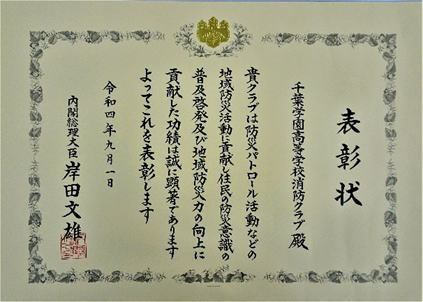 表彰状
千葉学園高等学校消防クラブ 殿
貴クラブは防災パトロール活動などの
地域防災活動に貢献し住民の防災意識の
普及啓発及び地域防災力の向上に
貢献した功績は誠に顕著であります
よってこれを表彰します
令和四年九月一日
内閣総理大臣 岸田文雄